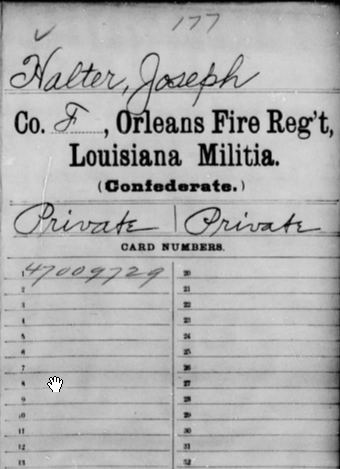 177
Halter, Joseph
Co. F, Orleans Fire Reg't,
Louisiana Militia.
(Confederate.)
Private | Private
CARD NUMBERS.
1 47009729 20
2 21
3 22
4 23
5 24
6 25
7 26
8 27
9 28
10 29
11 30
12 31
13 32